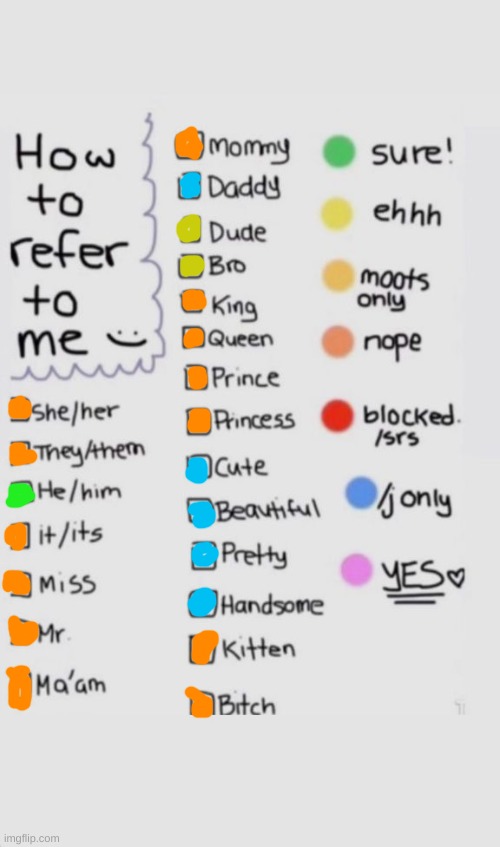 How
to
refer
to
me :)
She/her
They/them
He/him
it/its
Miss
Mr.
Ma'am
Mommy
Daddy
Dude
Bro
King
Queen
Prince
Princess
Cute
Beautiful
Pretty
Handsome
Kitten
Bitch
sure!
ehhh
moots
only
nope
blocked.
/srs
/j only
YES♡
imgflip.com